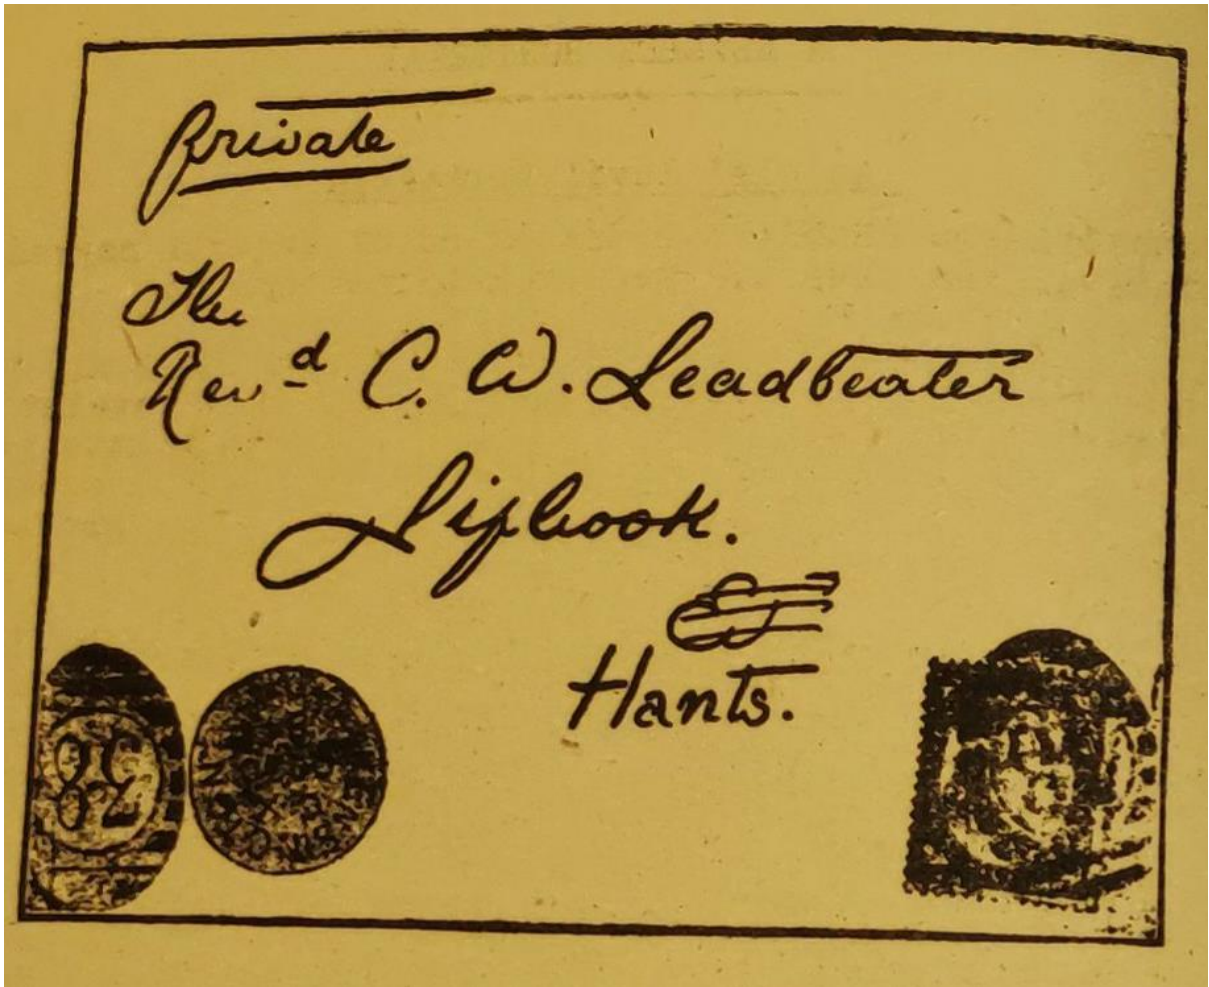 Private
The
Revd C. W. Leadbeater
Liphook.
Hants.